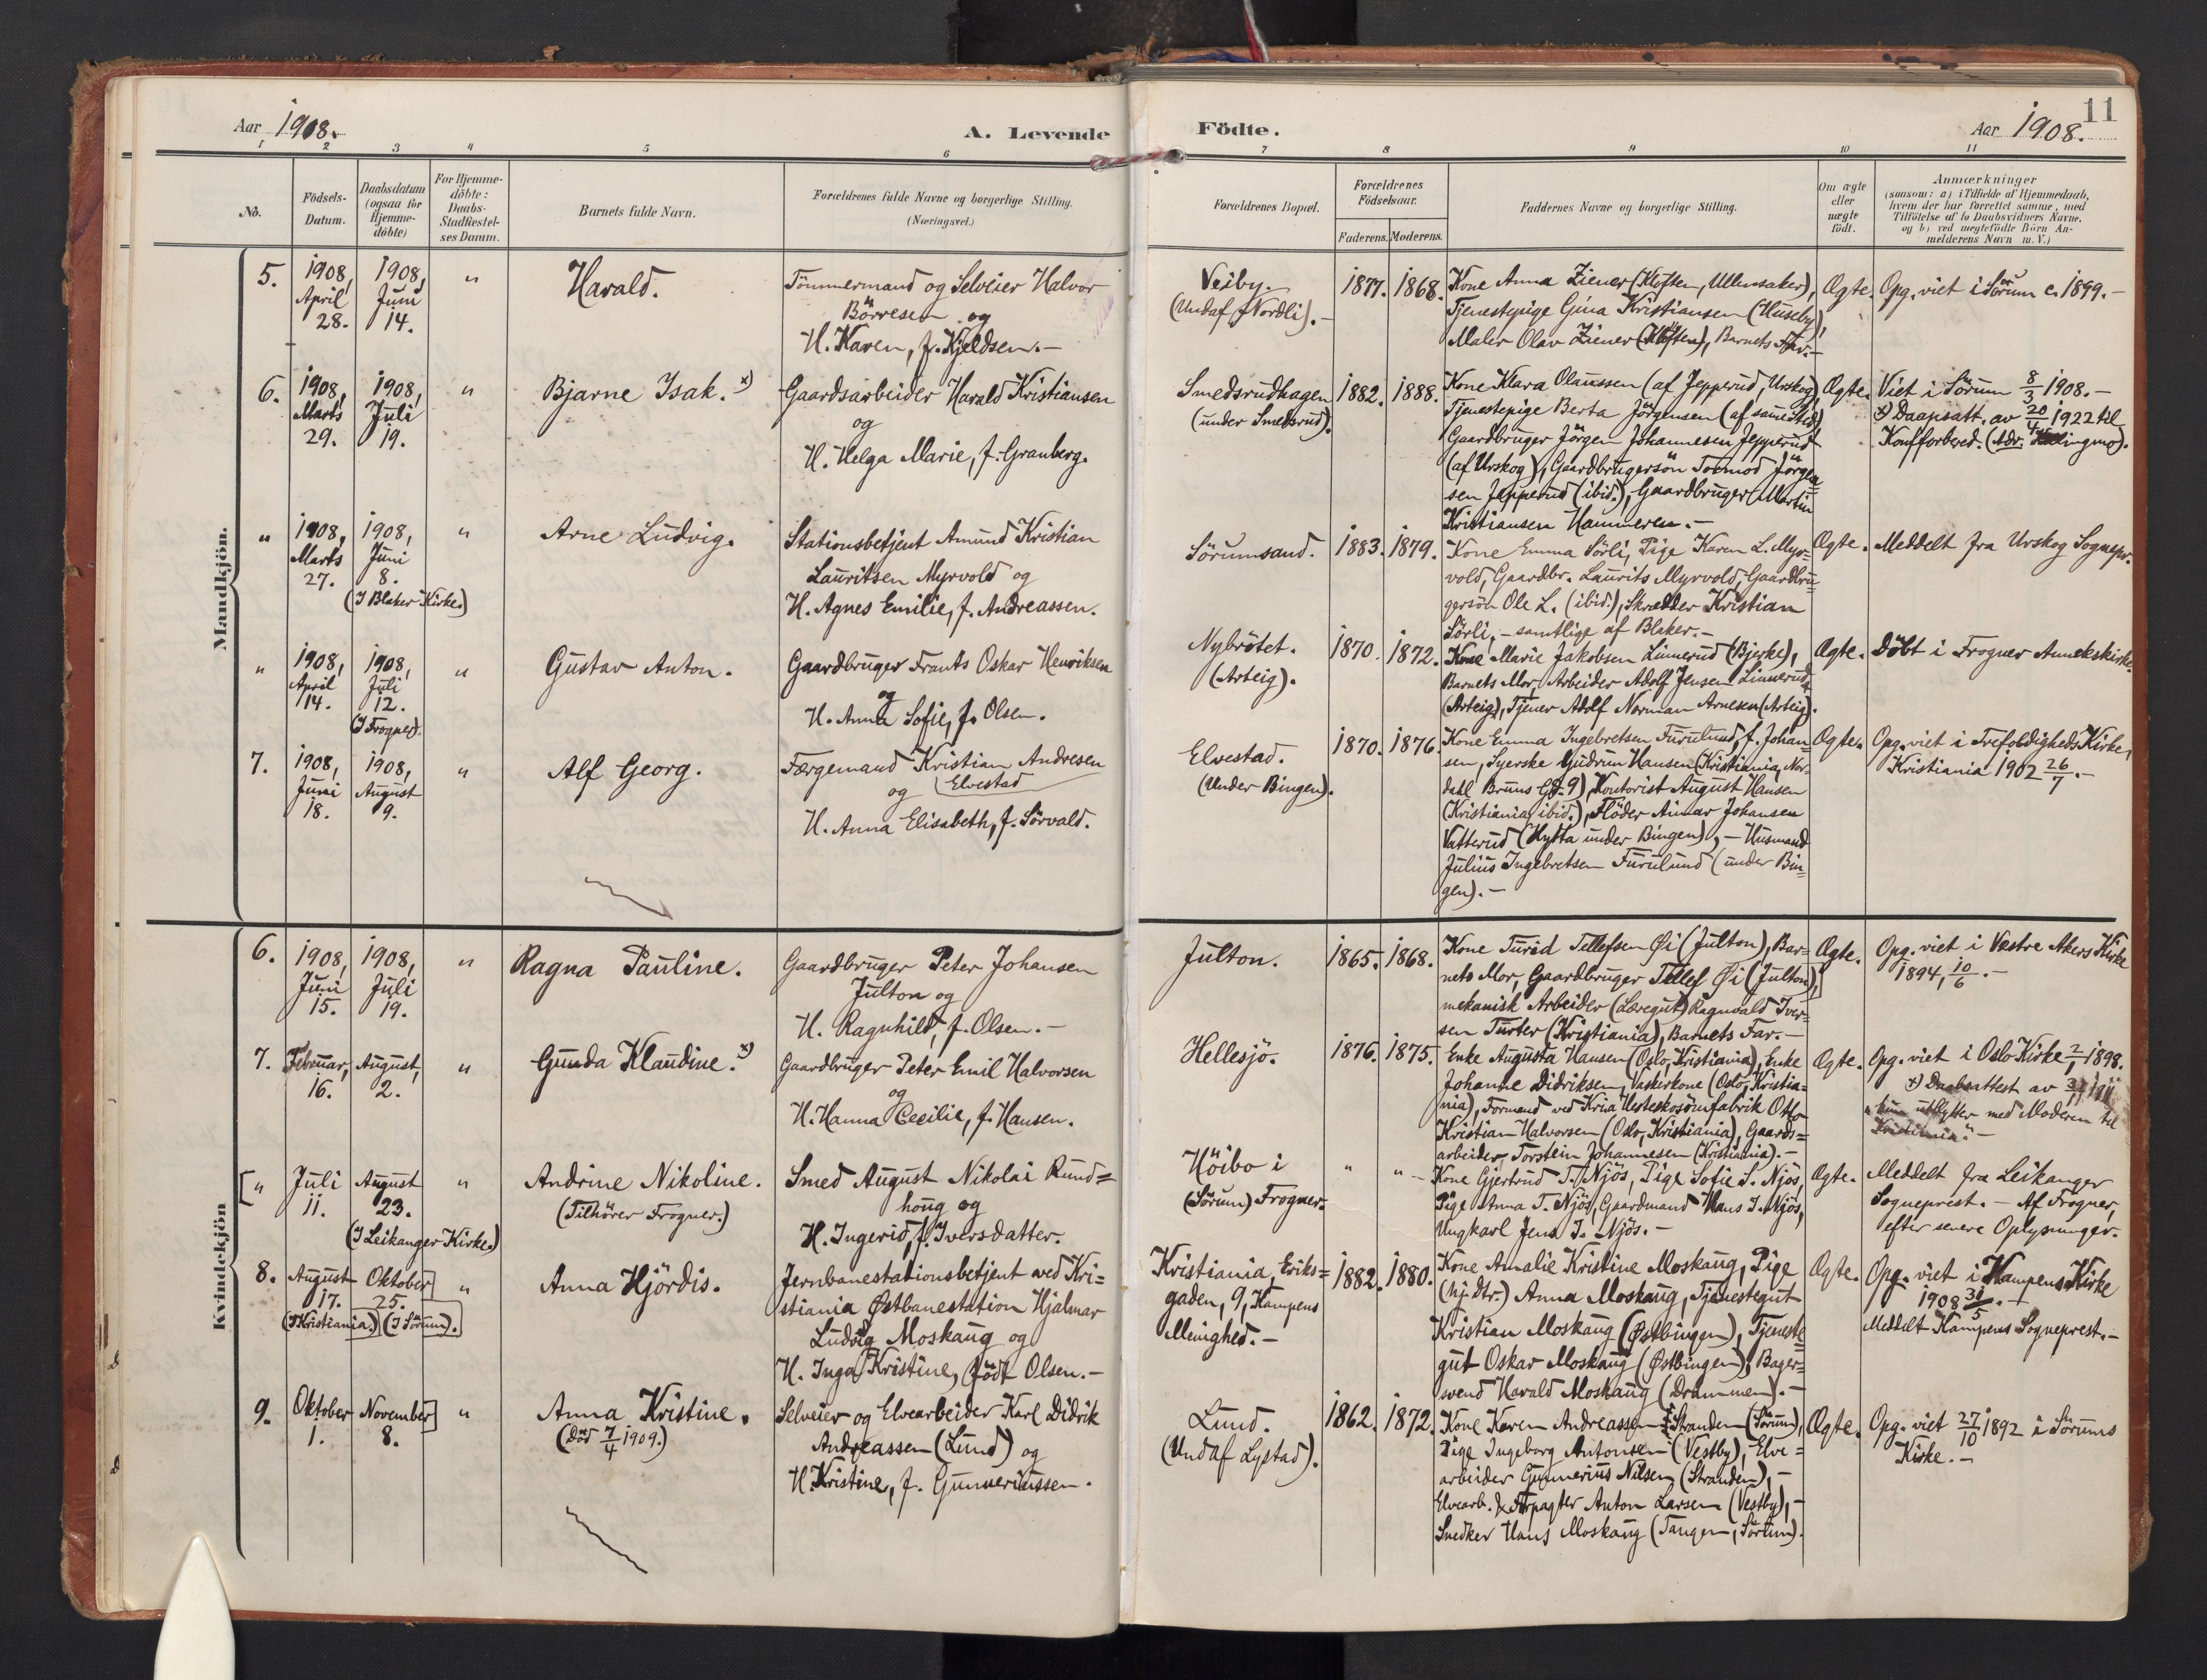 Aar 1908.
A. Levende
Födte.
Aar 1908.
11
1 2 3 4 5 6 7 8 9 10 11
No.
Födsels-
Datum.
Daabsdatum
(ogsaa for
Hjemme-
döbte)
For Hjemme-
döbte:
Daabs-
Stadfæstel-
ses Datum.
Barnets fulde Navn.
Forældrenes fulde Navne og borgerlige Stilling.
(Næringsvei.)
Forældrenes Bopæl.
Forældrenes
Födselsaar.
Faderens. Moderens.
Faddernes Navne og borgerlige Stilling.
Om ægte
eller
uægte
födt.
Anmærkninger
(saasom: a) i Tilfælde af Hjemmedaab,
hvem der har forrettet samme, med
Tilföielse af to Daabsvidners Navne.
og b) ved uægtefödte Börn An-
melderens Navn m. V.)
Mandkjön.
5.
1908,
April
28.
1908,
Juni
14.
"
Harald.
Tömmermand og Selveier Halvor
Börresen og
H. Karen, f. Kjeldsen.-
Veiby.
(Undaf Nordli).-
1877. 1868.
Kone Anna Ziener (Kloften, Ullensaker),
Tjenestepige Gina Kristiansen (Huseby),
Maler Olav Ziener (Kloften), Barnets Far.-
Ægte.
Opg. viet i Sörum c. 1899.-
6.
1908,
Marts
29.
1908,
Juli
19.
"
Bjarne Isak. x)
Gaardsarbeider Harald Kristiansen
og
H. Helga Marie, f. Granberg.
Smedsrudhagen
(under Smedsrud).
1882. 1888.
Kone Klara Olaussen (af Jepperud, Urskog)
Tjenestepige Berta Jörgensen (af samested)
Gaardbruger Jörgen Johannesen Jepperud
(af Urskog), Gaardbrugersön Tormod Jörgen=
sen Jepperud (ibid.), Gaardbruger Martin
Kristiansen Hammeren.-
Ægte.
Viet i Sörum 8/3 1908.-
x) Daapsatt. av 20/4 1922 til
Konfforbered. (Adr.
"
1908,
Marts
27.
1908,
Juni
8.
(I Blaker Kirke.)
"
Arne Ludvig.
Stationsbetjent Amund Kristian
Lauritsen Myrvold og
H. Agnes Emilie, f. Andreassen.
Sörumsand.
1883. 1879.
Kone Emma Sörli, Pige Karen L. Myr=
vold, Gaardbr. Laurits Myrvold, Gaardbru=
gersön Ole L. (ibid.), Skrædder Kristian
Sörli, - samtlige af Blaker.-
Ægte.
Meddelt fra Urskog Sognepr.
"
1908,
April
14.
1908,
Juli
12.
(I Frogner).
"
Gustav Anton.
Gaardbruger Frants Oskar Henriksen
og
H. Anna Sofie, f. Olsen.
Nybrötet.
(Arteig).
1870. 1872.
Kone Marie Jakobsen Linnerud (Bjerke),
Barnets Mor, Arbeider Adolf Jensen Linnerud
(Arteig), Tjener Adolf Norman Arnesen (Arteig).
Ægte.
Döbt i Frogner Annekskirke.
7.
1908,
Juni
18.
1908,
August
9.
"
Alf Georg.
Færgemand Kristian Andresen
og Elvestad
H. Anna Elisabeth, f. Sörvald.
Elvestad.
(Under Bingen).
1870. 1876.
Kone Emma Ingebretsen Furulund, f. Johan
sen, Syerske Gudrun Hansen (Kristiania, Nor-
dahl Bruns Gd. 9), Kontorist August Hansen
(Kristiania, ibid.), Flöder Aimar Johansen
Vatterud (Hytta under Bingen), - Husmand
Julius Ingebretsen Furulund (under Bin=
gen).-
Ægte.
Opg. viet i Trefoldigheds Kirke,
Kristiania 1902 26/7.-
Kvindekjön
6.
1908,
Juni
15.
1908,
Juli
19.
"
Ragna Pauline.
Gaardbruger Peter Johansen
Julton og
H. Ragnhild, f. Olsen.-
Julton.
1865. 1868.
Kone Turid Tellefsen Øi (Julton), Bar-
nets Mor, Gaardbruger Tellef Øi (Julton),
mekanisk Arbeider (Læregut) Ragnvald Iver=
sen Turter (Kristiania), Barnets Far.-
Ægte.
Opg. viet i Vestre Akers Kirke
1894, 10/6.-
7.
Februar,
16.
August,
2.
"
Gunda Klaudine. x)
Gaardbruger Peter Emil Halvorsen
og
H. Hanna Cecilie, f. Hansen.
Hellesjö.
1876. 1875.
Enke Augusta Hansen (Oslo, Kristiania), Enke
Johanne Didriksen, Vaskerkone (Oslo, Kristia-
nia), Formand ved Kr.ia Hesteskosömfabrik Otto
Kristian Halvorsen (Oslo, Kristiania), Gaards=
arbeider Torstein Johannesen (Kristiania).-
Ægte.
Opg. viet i Oslo Kirke 1898.
x) Daabsattest av 1911
utflytter med Moderen til
Kristiania".-
"
Juli
11.
August
23.
(I Leikanger Kirke.)
"
Andrine Nikoline.
(Tilhörer Frogner.)
Smed August Nikolai Rund=
houg og
H. Ingerid, f. Iversdatter.
Höibo i
(Sörum) Frogner.
" "
Kone Gjertrud T. Njös, Pige Sofie S. Njös,
Pige Anna T. Njös, Gaardmand Hans J. Njös,
Ungkarl Jens J. Njös.-
Ægte.
Meddelt fra Leikanger
Sogneprest.- Af Frogner,
efter senere Oplysninger.
8.
August
17.
(I Kristiania.)
Oktober
25.
(I Sörum).
"
Anna Hjördis.
Jernbanestationsbetjent ved Kri=
stiania Østbanestation Hjalmar
Ludvig Moskaug og
H. Inga Kristine, född Olsen.-
Kristiania, Eriks=
gaden, 9, Kampens
Menighed.-
1882. 1880.
Kone Amalie Kristine Moskaug, Pige
(hj. dtr.) Anna Moskaug, Tjenestegut
Kristian Moskaug (Østbingen), Tjeneste
gut Oskar Moskaug (Østbingen), Bager=
svend Harald Moskaug (Drammen).-
Ægte.
Opg. viet i Kampens Kirke
1908 /5.-
Meddelt Kampens Sogneprest.-
9.
Oktober
1.
November
8.
"
Anna Kristine.
(Död 7/4 1909.)
Selveier og Elvearbeider Karl Didrik
Andreassen (Lund) og
H. Kristine, f. Gunneriussen.
Lund.
(Undaf Lystad).
1862. 1872.
Kone Karen Andreassen Stranden (Sörum),
Pige Ingeborg Antonsen (Vestby), Elve=
arbeider Gunnerius Nilsen (Stranden),-
Elvearb. & Forpagter Anton Larsen (Vestby),-
Snedker Hans Moskaug (Tangen, Sörum).
Ægte.
Opg. viet 27/10 1892 i Sörums
Kirke.-